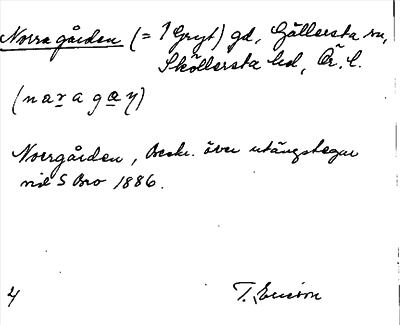 Norra gården (= 1 Gryt) gd, Gällersta sn,
Sköllersta hd, Ör. l.
(naragay)
Norrgården, Beskr. över utängstegar
vid S Bro 1886.
4 T. Ericson